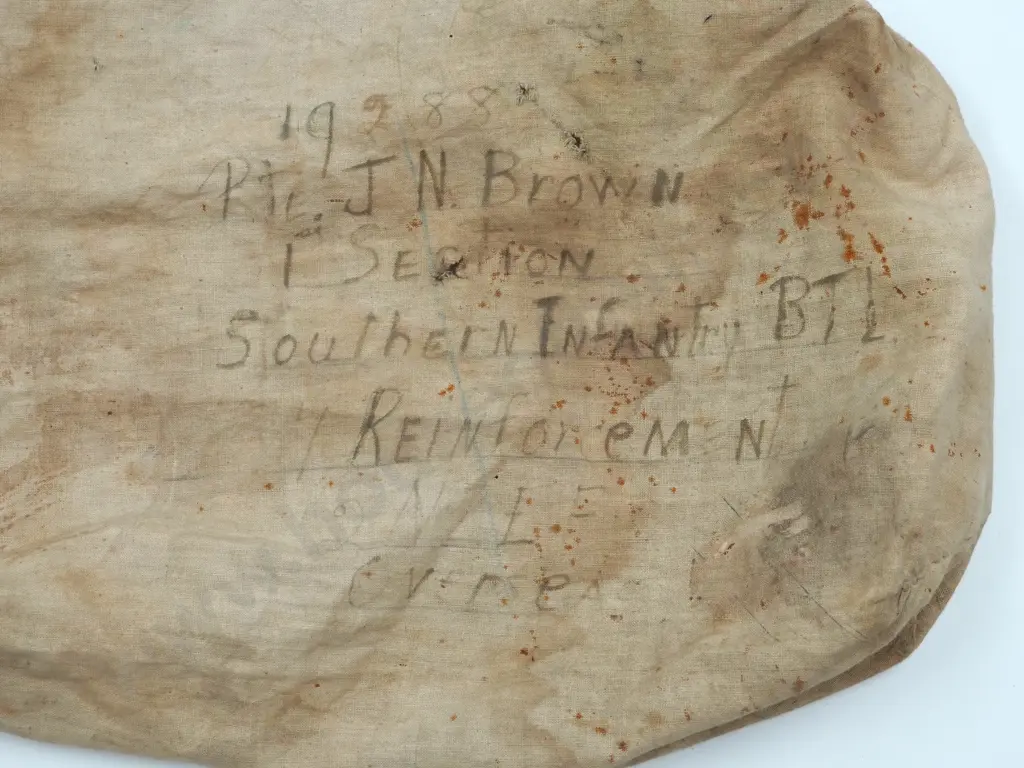 19288
Pte. J N Brown
1st Section
Southern Infantry BTL
Reinforcement